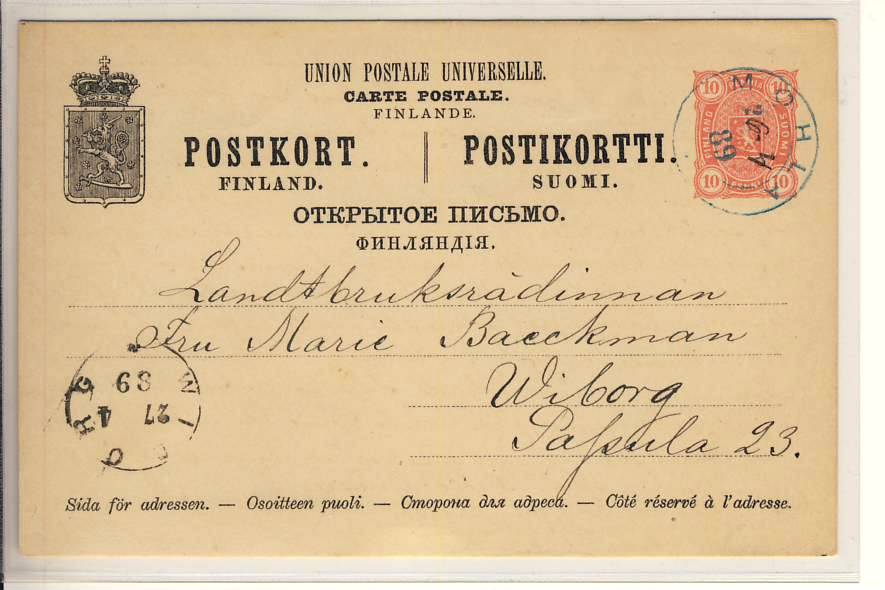 UNION POSTALE UNIVERSELLE.
CARTE POSTALE.
FINLANDE.
POSTKORT. POSTIKORTTI.
FINLAND. SUOMI.
ОТКРЫТОЕ ПИСЬМО.
ФИНЛЯНДІЯ.
10 10
FINLAND SUOMI
10 10
89
Landtbruksrådinnan
Fru Marie Baeckman
Wiborg
Papula 23.
WIBORG
27 4
89
Sida för adressen. — Osoitteen puoli. — Сторона для адреса. — Côté réservé à l'adresse.